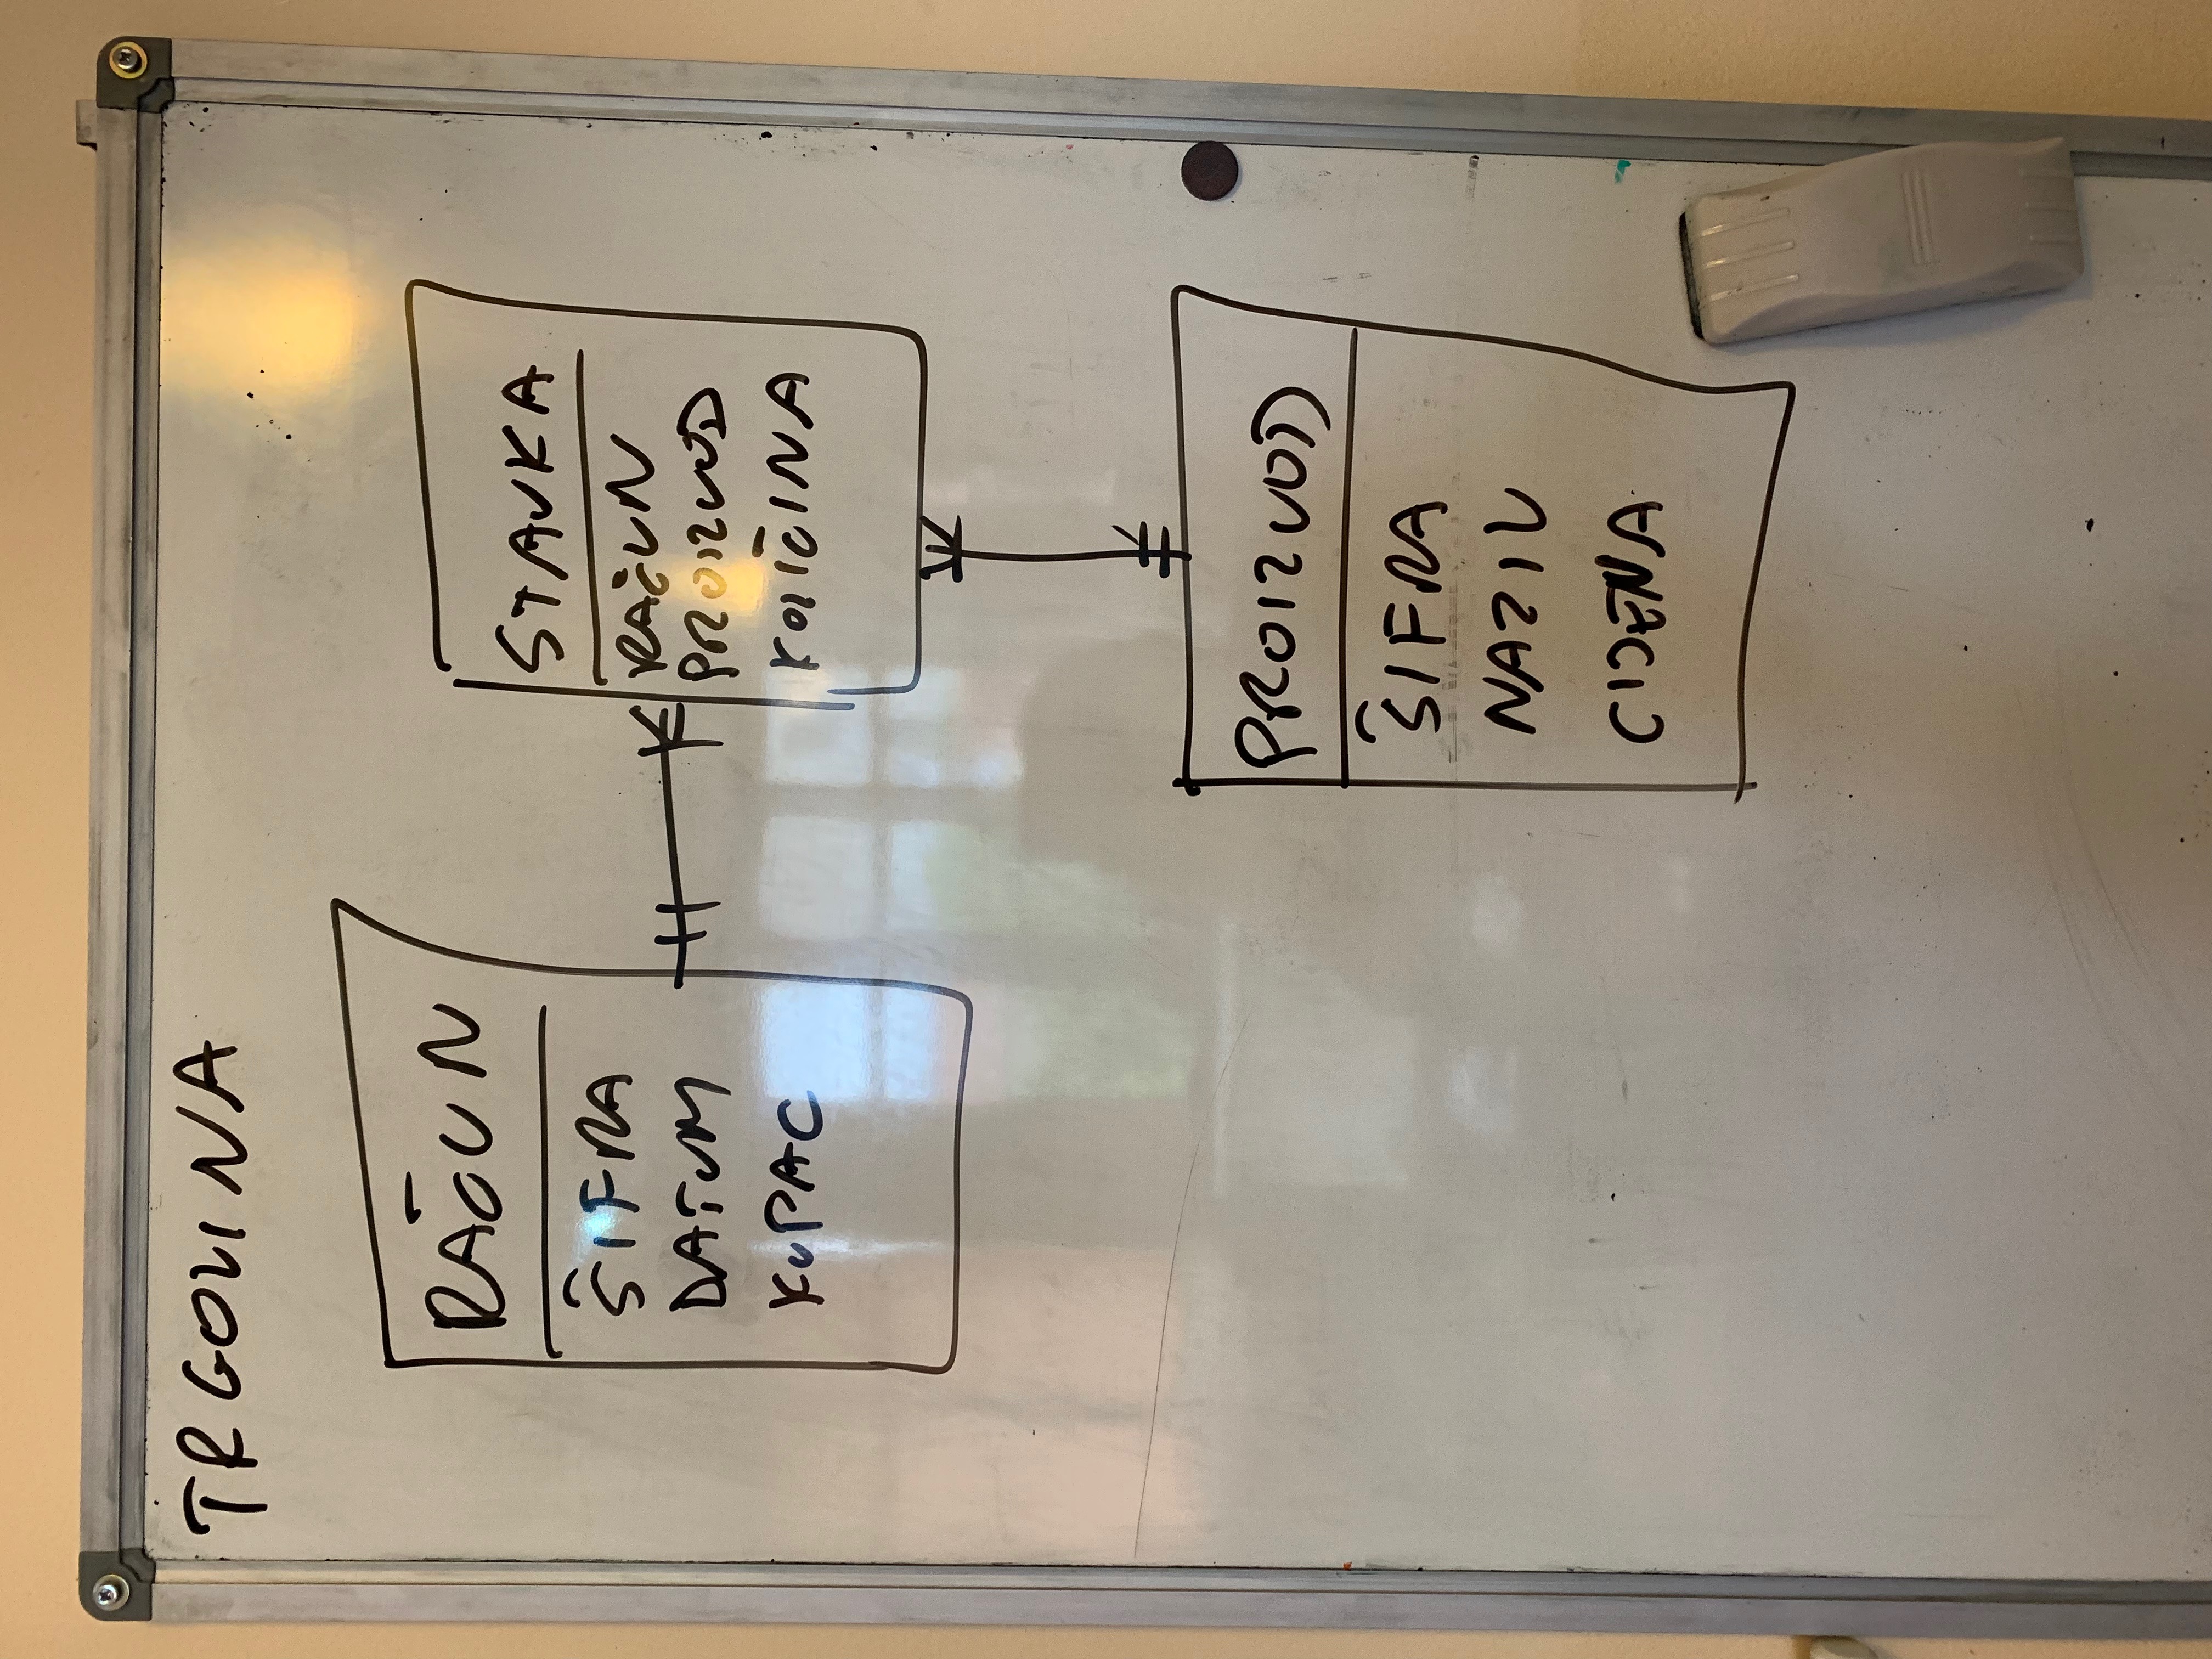 TRGOVINA
RAČUN
ŠIFRA
DATUM
KUPAC
STAVKA
RAČUN
PROIZVOD
KOLIČINA
PROIZVOD
ŠIFRA
NAZIV
CIJENA